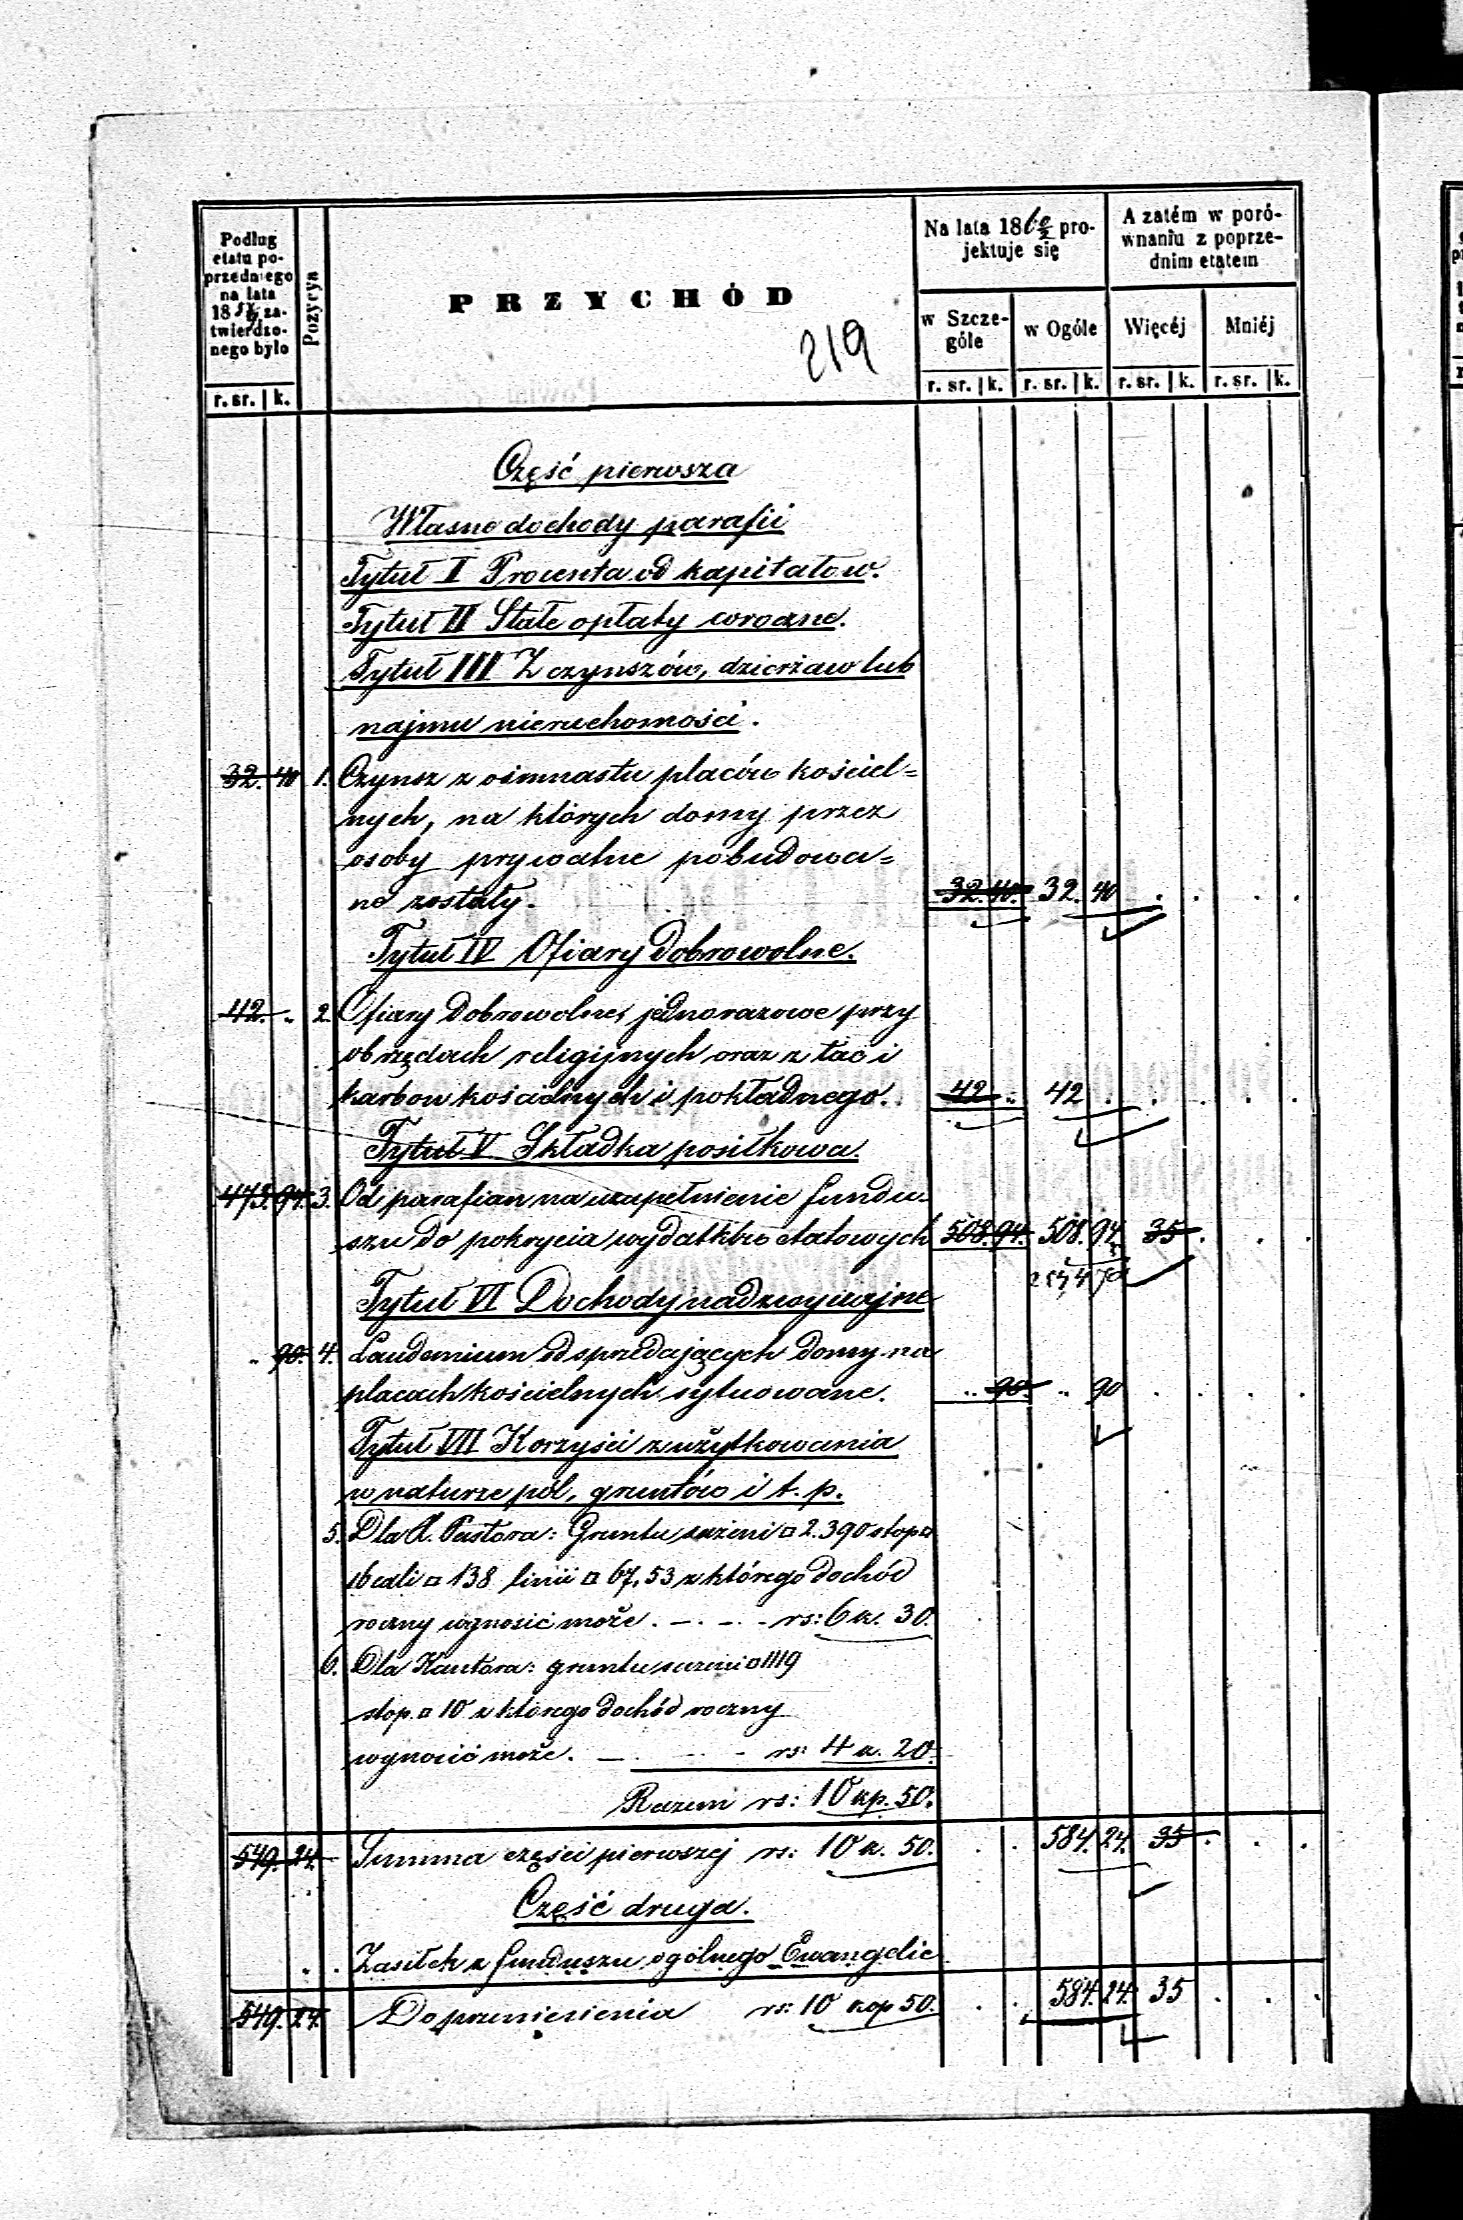 Podług
etatu po-
przedniego
na lata
18 za-
twierdzo-
nego było
r. sr. | k.
Pozycya
PRZYCHÓD
219
Na lata 1860/2 pro-
jektuje się
w Szcze-
góle
w Ogóle
r. sr. | k. r. sr. | k.
A zatém w poró-
wnaniu z poprze-
dnim etatem
Więcéj Mniéj
r. sr. | k. r. sr. | k.
Część pierwsza
Własne dochody parafii
Tytuł I Procenta od kapitałow.
Tytuł II Stałe opłaty wroczne.
Tytuł III Z czynszów, dzierżaw lub
najmu nieruchomości.
32. 40 1. Czynsz z ośmnastu placów kościel=
nych, na których domy przez
osoby prywatne pobudowa=
ne zostały. 32. 40. 32. 40 . . . .
Tytuł IV Ofiary Dobrowolne.
42. .. 2. Ofiary Dobrowolne, jednorazowe przy
obrzędach religijnych oraz z tac i
karbon kościelnych i pokładnego. 42 .. 42 . . . . .
Tytuł V Składka posiłkowa
473. 94. 3. Od parafian na uzupełnienie fundu-
szu do pokrycia wydatków etatowych 508. 94. 508. 94 35 . . .
Tytuł VI Dochody nadzwyczajne
.. 90. 4. Laudemium od sprzedających domy na
placach kościelnych sytuowane. .. 90. .. 90 . . . .
Tytuł VII Korzyści z użytkowania
w naturze pól, gruntów i t. p.
5. Dla X. Pastora: Gruntu sążeni □ 2.390 stop □
16 cali □ 138 linii □ 67,53 z którego dochód
roczny wynosić może . — . — . - rs: 6 k. 30.
6. Dla Kantora: gruntu sążeni □ 1119
stop. □ 10 z którego dochód roczny
wynosić może. — . - - - rs: 4 k. 20.
Razem rs: 10 kp. 50.
549. 24. Summa części pierwszej rs: 10 k. 50. . . 584. 24. 35 . . .
Część druga.
. . Zasiłek z funduszu ogólnego Ewangelic
549. 24. Do przeniesienia rs: 10 kop 50. . . 584. 24. 35 . . .